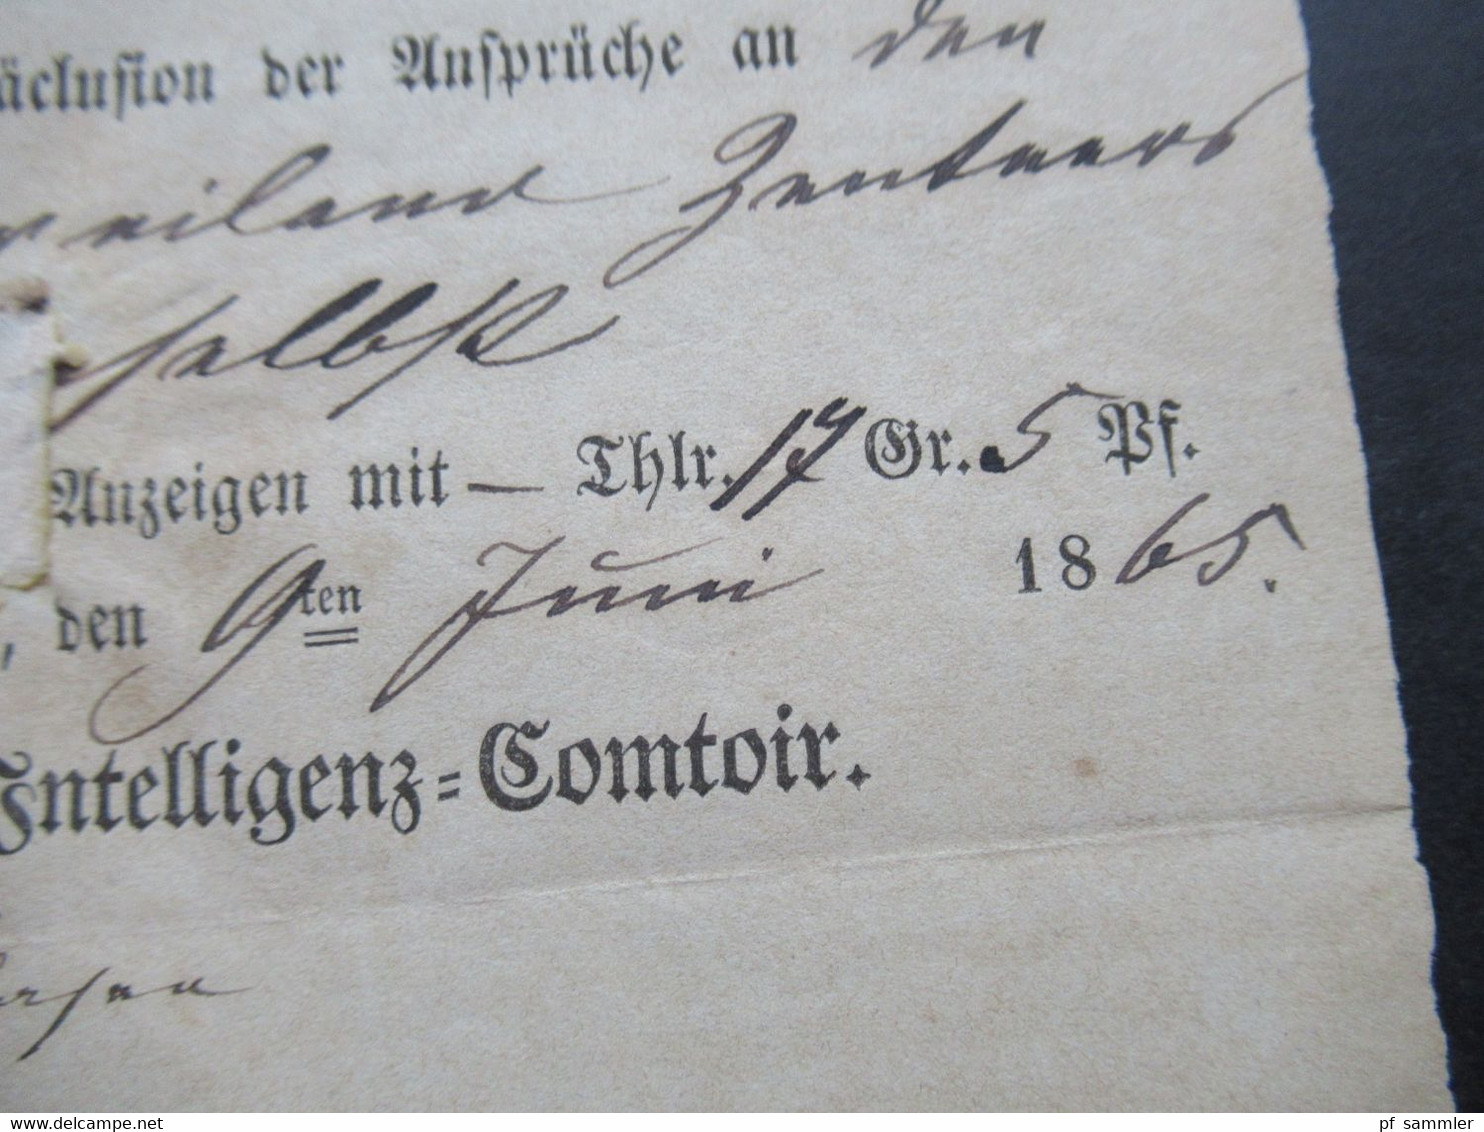 äclusion der Ansprüche an den
weiland Zentners
selbst
Anzeigen mit — Thlr. 17 Gr. 5 Pf.
, den 9ten Juni 1865.
Intelligenz=Comtoir.
www.delcampe.net
pf_sammler